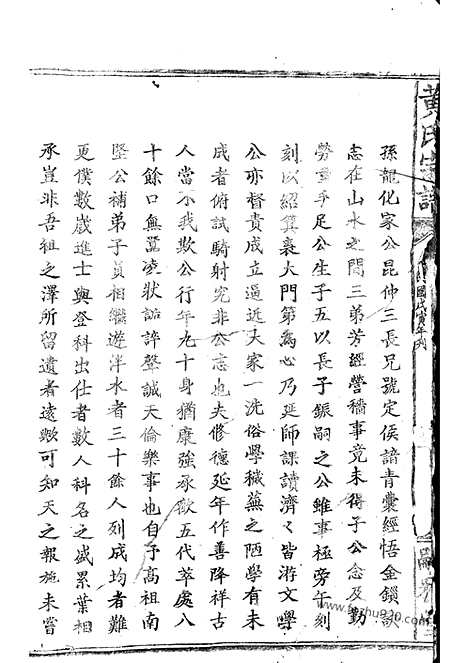 黃氏宗譜
民國戊寅年刊
孫龍化家公昆仲三長兄號定侯諳青囊經悟金鎖訣
志在山水之間三弟芳經營穡事竟未得子公念及勤
勞重手足公生子五以長子鋠嗣之公雖事極旁午刻
刻以紹箕裘大門第為心乃延師課讀濟々皆游文學
公亦督責成立逼近大家一洗俗學穢蕪之陋學有未
成者俯試騎射究非公志也夫修德延年作善降祥古
人當不我欺公行年九十身猶康強承歡五代萃處八
十餘口無囂凌狀詬誶聲誠天倫樂事也自予高祖南
堅公補弟子員相繼遊泮水者三十餘人列成均者難
更僕數歲進士與登科出仕者數人科名之盛累葉相
承豈非吾祖之澤所留遺者遠歟可知天之報施未嘗